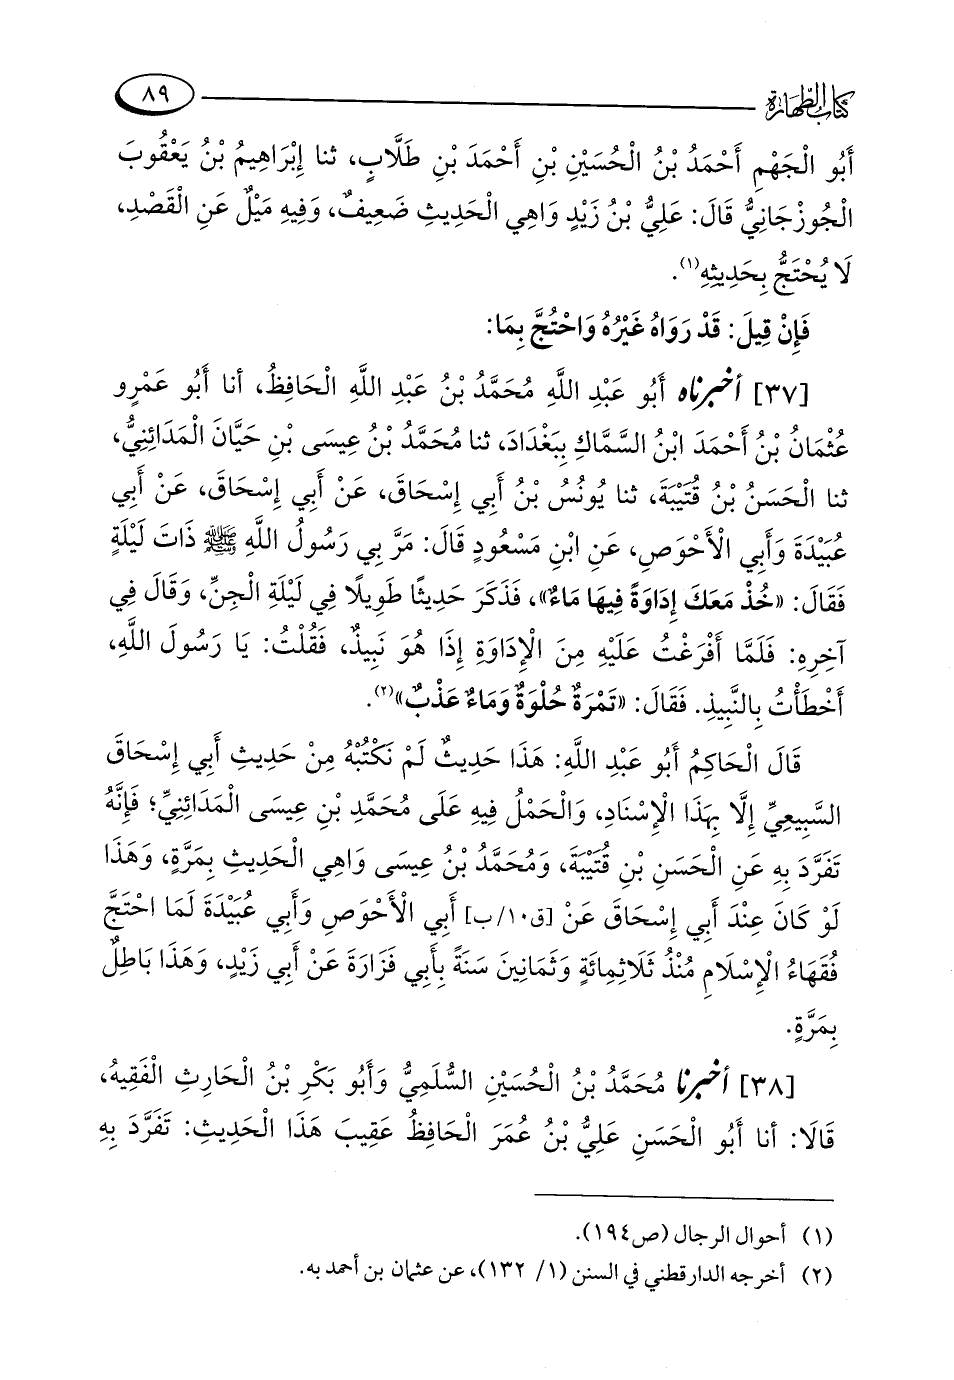 كتاب الطهارة ٨٩
أَبُو الْجَهْمِ أَحْمَدُ بْنُ الْحُسَيْنِ بْنِ أَحْمَدَ بْنِ طَلَّابٍ، ثنا إِبْرَاهِيمُ بْنُ يَعْقُوبَ
الْجُوزْجَانِيُّ قَالَ: عَلِيُّ بْنُ زَيْدٍ وَاهِي الْحَدِيثِ ضَعِيفٌ، وَفِيهِ مَيْلٌ عَنِ الْقَصْدِ،
لَا يُحْتَجُّ بِحَدِيثِهِ(١).
فَإِنْ قِيلَ: قَدْ رَوَاهُ غَيْرُهُ وَاحْتُجَّ بِمَا:
[٣٧] أخبرناه أَبُو عَبْدِ اللَّهِ مُحَمَّدُ بْنُ عَبْدِ اللَّهِ الْحَافِظُ، أنا أَبُو عَمْرٍو
عُثْمَانُ بْنُ أَحْمَدَ ابْنُ السَّمَّاكِ بِبَغْدَادَ، ثنا مُحَمَّدُ بْنُ عِيسَى بْنِ حَيَّانَ الْمَدَائِنِيُّ،
ثنا الْحَسَنُ بْنُ قُتَيْبَةَ، ثنا يُونُسُ بْنُ أَبِي إِسْحَاقَ، عَنْ أَبِي إِسْحَاقَ، عَنْ أَبِي
عُبَيْدَةَ وَأَبِي الْأَحْوَصِ، عَنِ ابْنِ مَسْعُودٍ قَالَ: مَرَّ بِي رَسُولُ اللَّهِ ﷺ ذَاتَ لَيْلَةٍ
فَقَالَ: «خُذْ مَعَكَ إِدَاوَةً فِيهَا مَاءٌ»، فَذَكَرَ حَدِيثًا طَوِيلًا فِي لَيْلَةِ الْجِنِّ، وَقَالَ فِي
آخِرِهِ: فَلَمَّا أَفْرَغْتُ عَلَيْهِ مِنَ الْإِدَاوَةِ إِذَا هُوَ نَبِيذٌ، فَقُلْتُ: يَا رَسُولَ اللهِ،
أَخْطَأْتُ بِالنَّبِيذِ. فَقَالَ: «تَمْرَةٌ حُلْوَةٌ وَمَاءٌ عَذْبٌ»(٢).
قَالَ الْحَاكِمُ أَبُو عَبْدِ اللَّهِ: هَذَا حَدِيثٌ لَمْ نَكْتُبْهُ مِنْ حَدِيثِ أَبِي إِسْحَاقَ
السَّبِيعِيِّ إِلَّا بِهَذَا الْإِسْنَادِ، وَالْحَمْلُ فِيهِ عَلَى مُحَمَّدِ بْنِ عِيسَى الْمَدَائِنِيِّ؛ فَإِنَّهُ
تَفَرَّدَ بِهِ عَنِ الْحَسَنِ بْنِ قُتَيْبَةَ، وَمُحَمَّدُ بْنُ عِيسَى وَاهِي الْحَدِيثِ بِمَرَّةٍ، وَهَذَا
لَوْ كَانَ عِنْدَ أَبِي إِسْحَاقَ عَنْ [ق١٠/ب] أَبِي الْأَحْوَصِ وَأَبِي عُبَيْدَةَ لَمَا احْتَجَّ
فُقَهَاءُ الْإِسْلَامِ مُنْذُ ثَلَاثِمِائَةٍ وَثَمَانِينَ سَنَةً بِأَبِي فَزَارَةَ عَنْ أَبِي زَيْدٍ، وَهَذَا بَاطِلٌ
بِمَرَّةٍ.
[٣٨] أخبرنا مُحَمَّدُ بْنُ الْحُسَيْنِ السُّلَمِيُّ وَأَبُو بَكْرِ بْنُ الْحَارِثِ الْفَقِيهُ،
قَالَا: أنا أَبُو الْحَسَنِ عَلِيُّ بْنُ عُمَرَ الْحَافِظُ عَقِيبَ هَذَا الْحَدِيثِ: تَفَرَّدَ بِهِ
(١) أحوال الرجال (ص١٩٤).
(٢) أخرجه الدارقطني في السنن (١/ ١٣٢)، عن عثمان بن أحمد به.